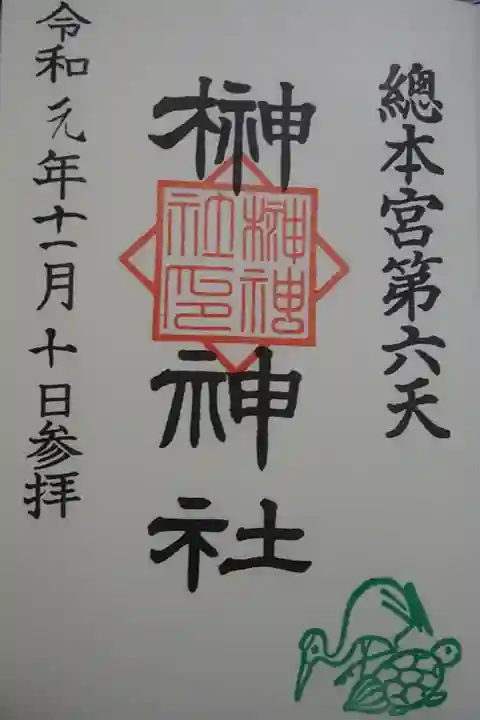 總本宮第六天
榊神社
榊神社印
令和元年十一月十日参拝